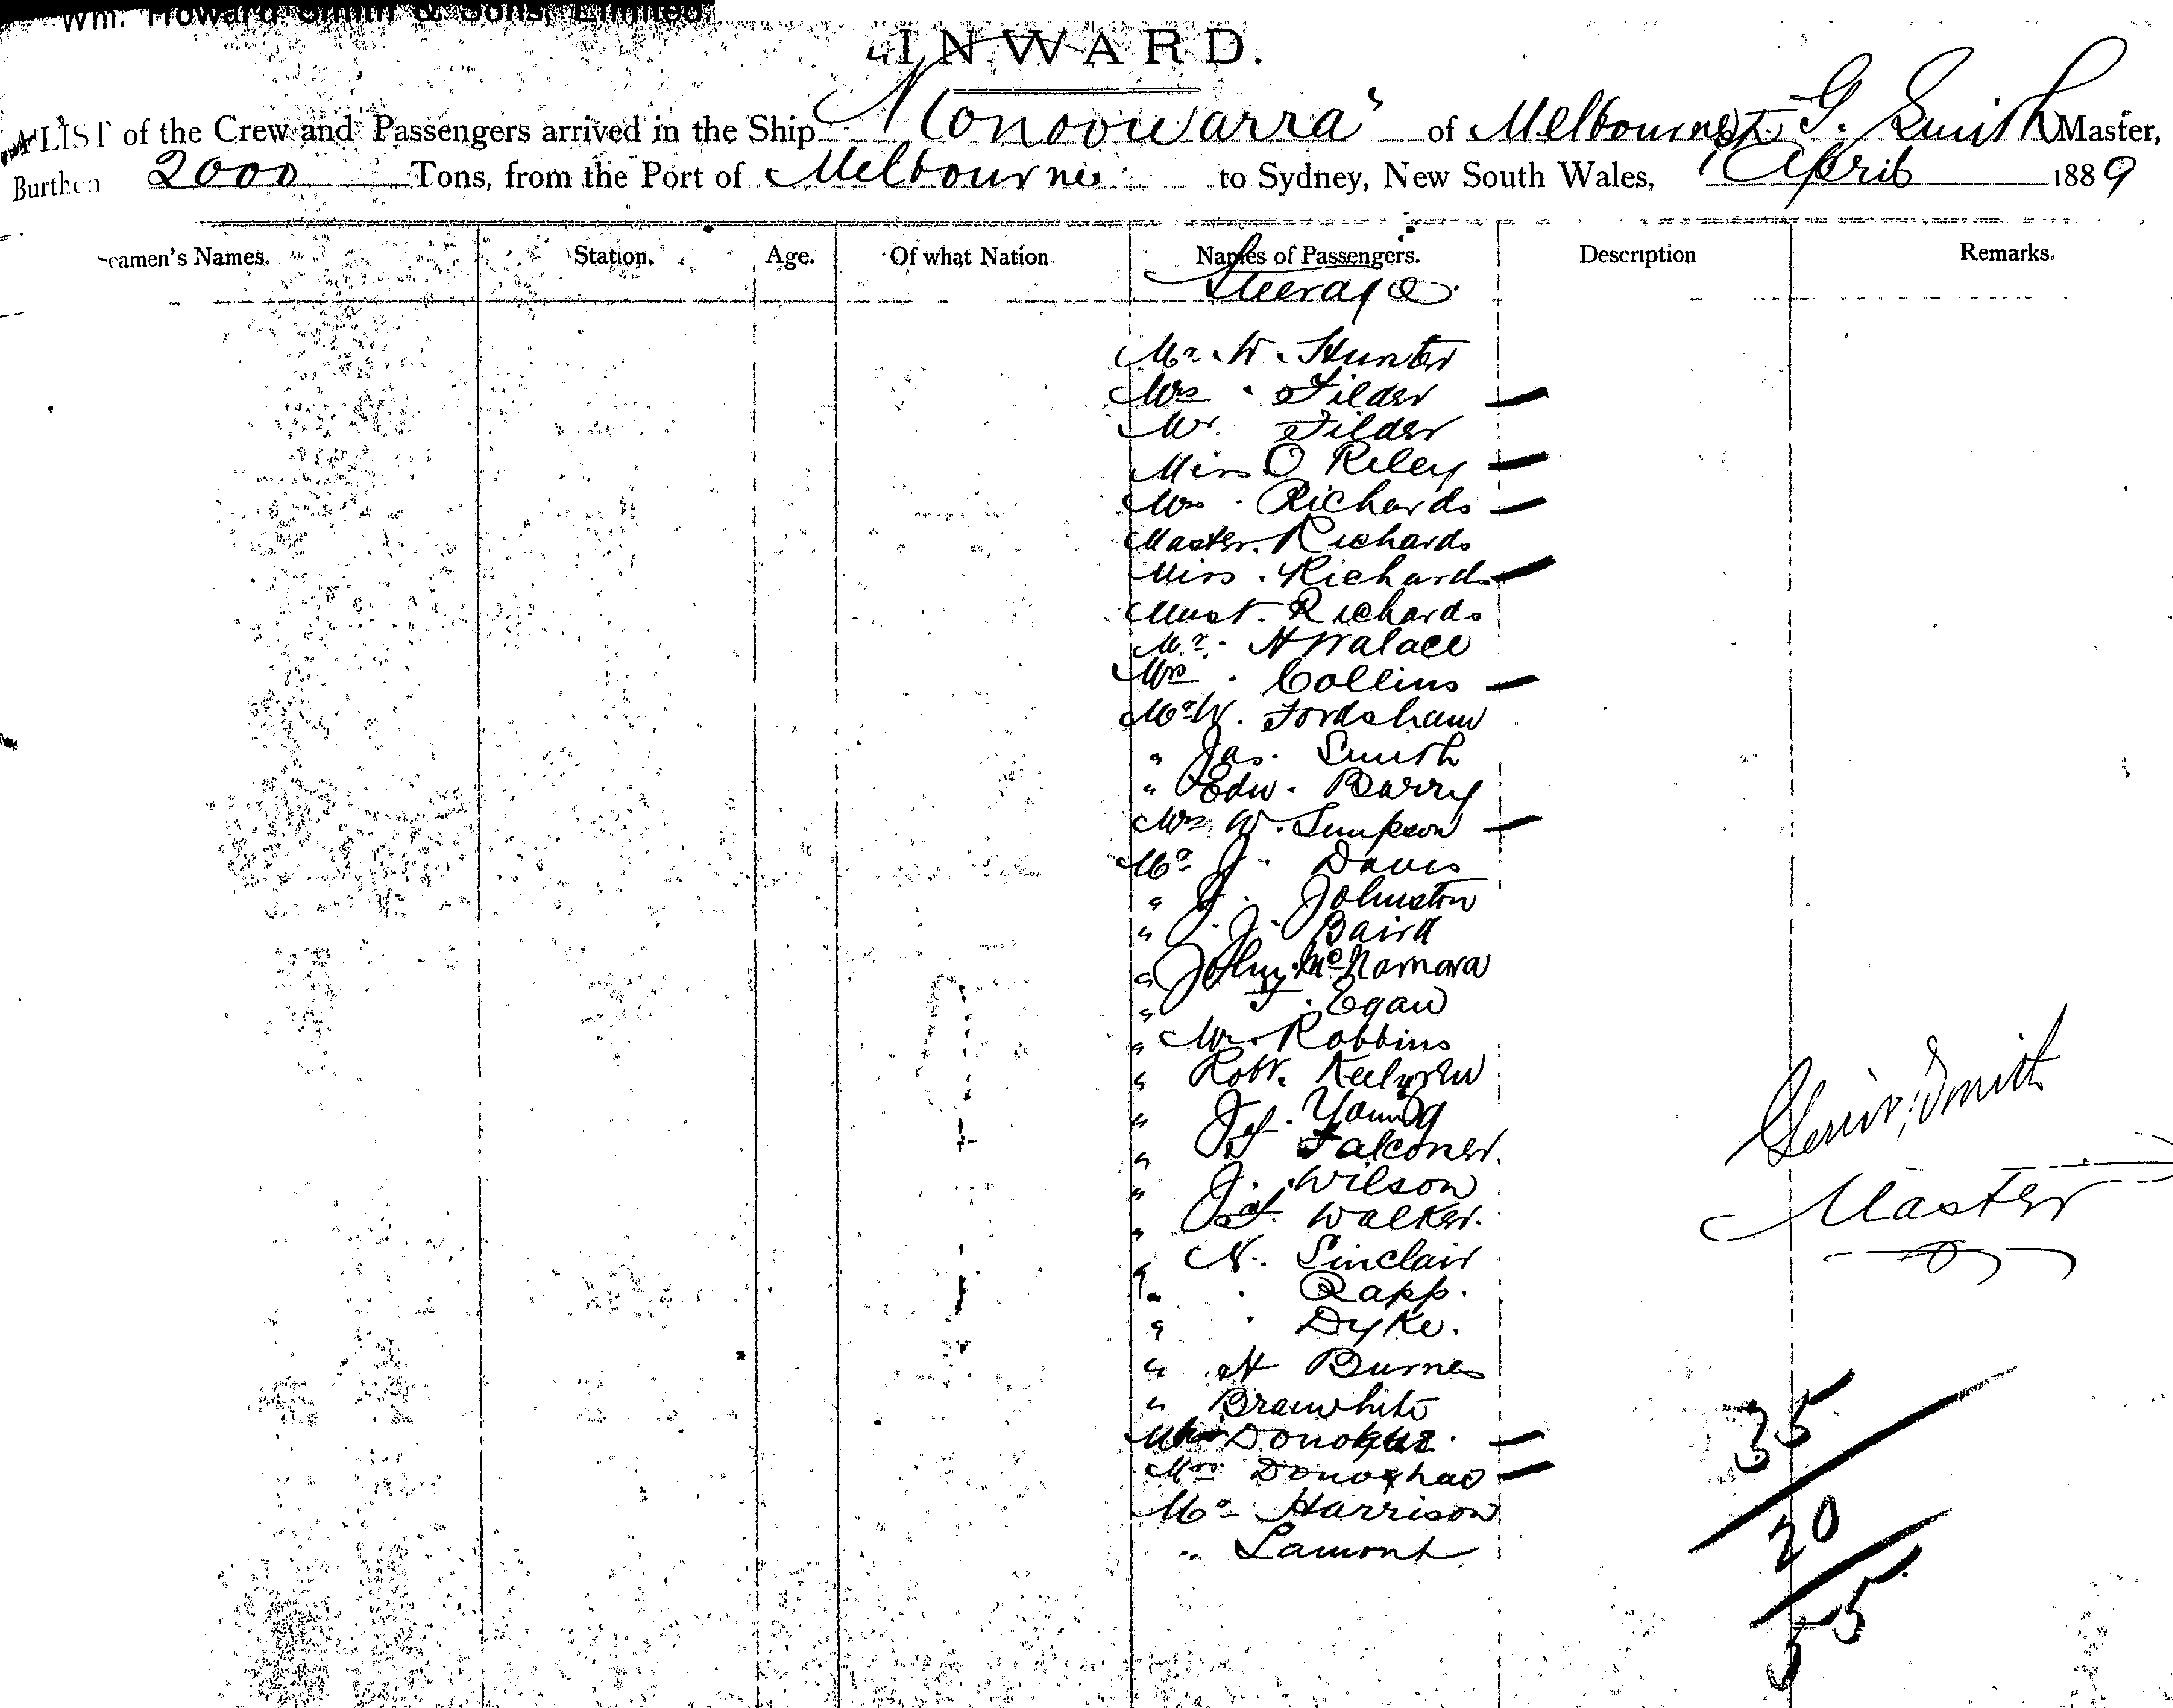 Wm. Howard Smith & Sons, Limited.
INWARD.
A LIST of the Crew and Passengers arrived in the Ship "Konoowarra" of Melbourne G. Smith Master,
Burthen 2000 Tons, from the Port of Melbourne to Sydney, New South Wales, 1st April 1889
Seamen's Names. Station. Age. Of what Nation Names of Passengers. Description Remarks.
Steerage
Mr. W. Hunter
Mrs. Filder
Mr. Filder
Miss O Riley
Mrs. Richards
Master. Richards
Miss. Richards
Mast. Richards
Mr. H Walace
Mrs. Collins
Mr W. Fordsham
" Jas. Smith
" Edw. Barry
Mrs. W. Simpson
Mr J. Davis
" J. Johnston
" J. Baird
" John McNamara
" T. Egan
" Mr. Robbins
" Robt.
" J. Young
" Falconer.
" J. Wilson
" Walker.
" N. Sinclair
" Rapp.
" Dyke.
" H Burnes
" Brawhite
Donoghue.
Mrs Donoghue
Mr Harrison
" Lamont
Smith
Master
35
20
55